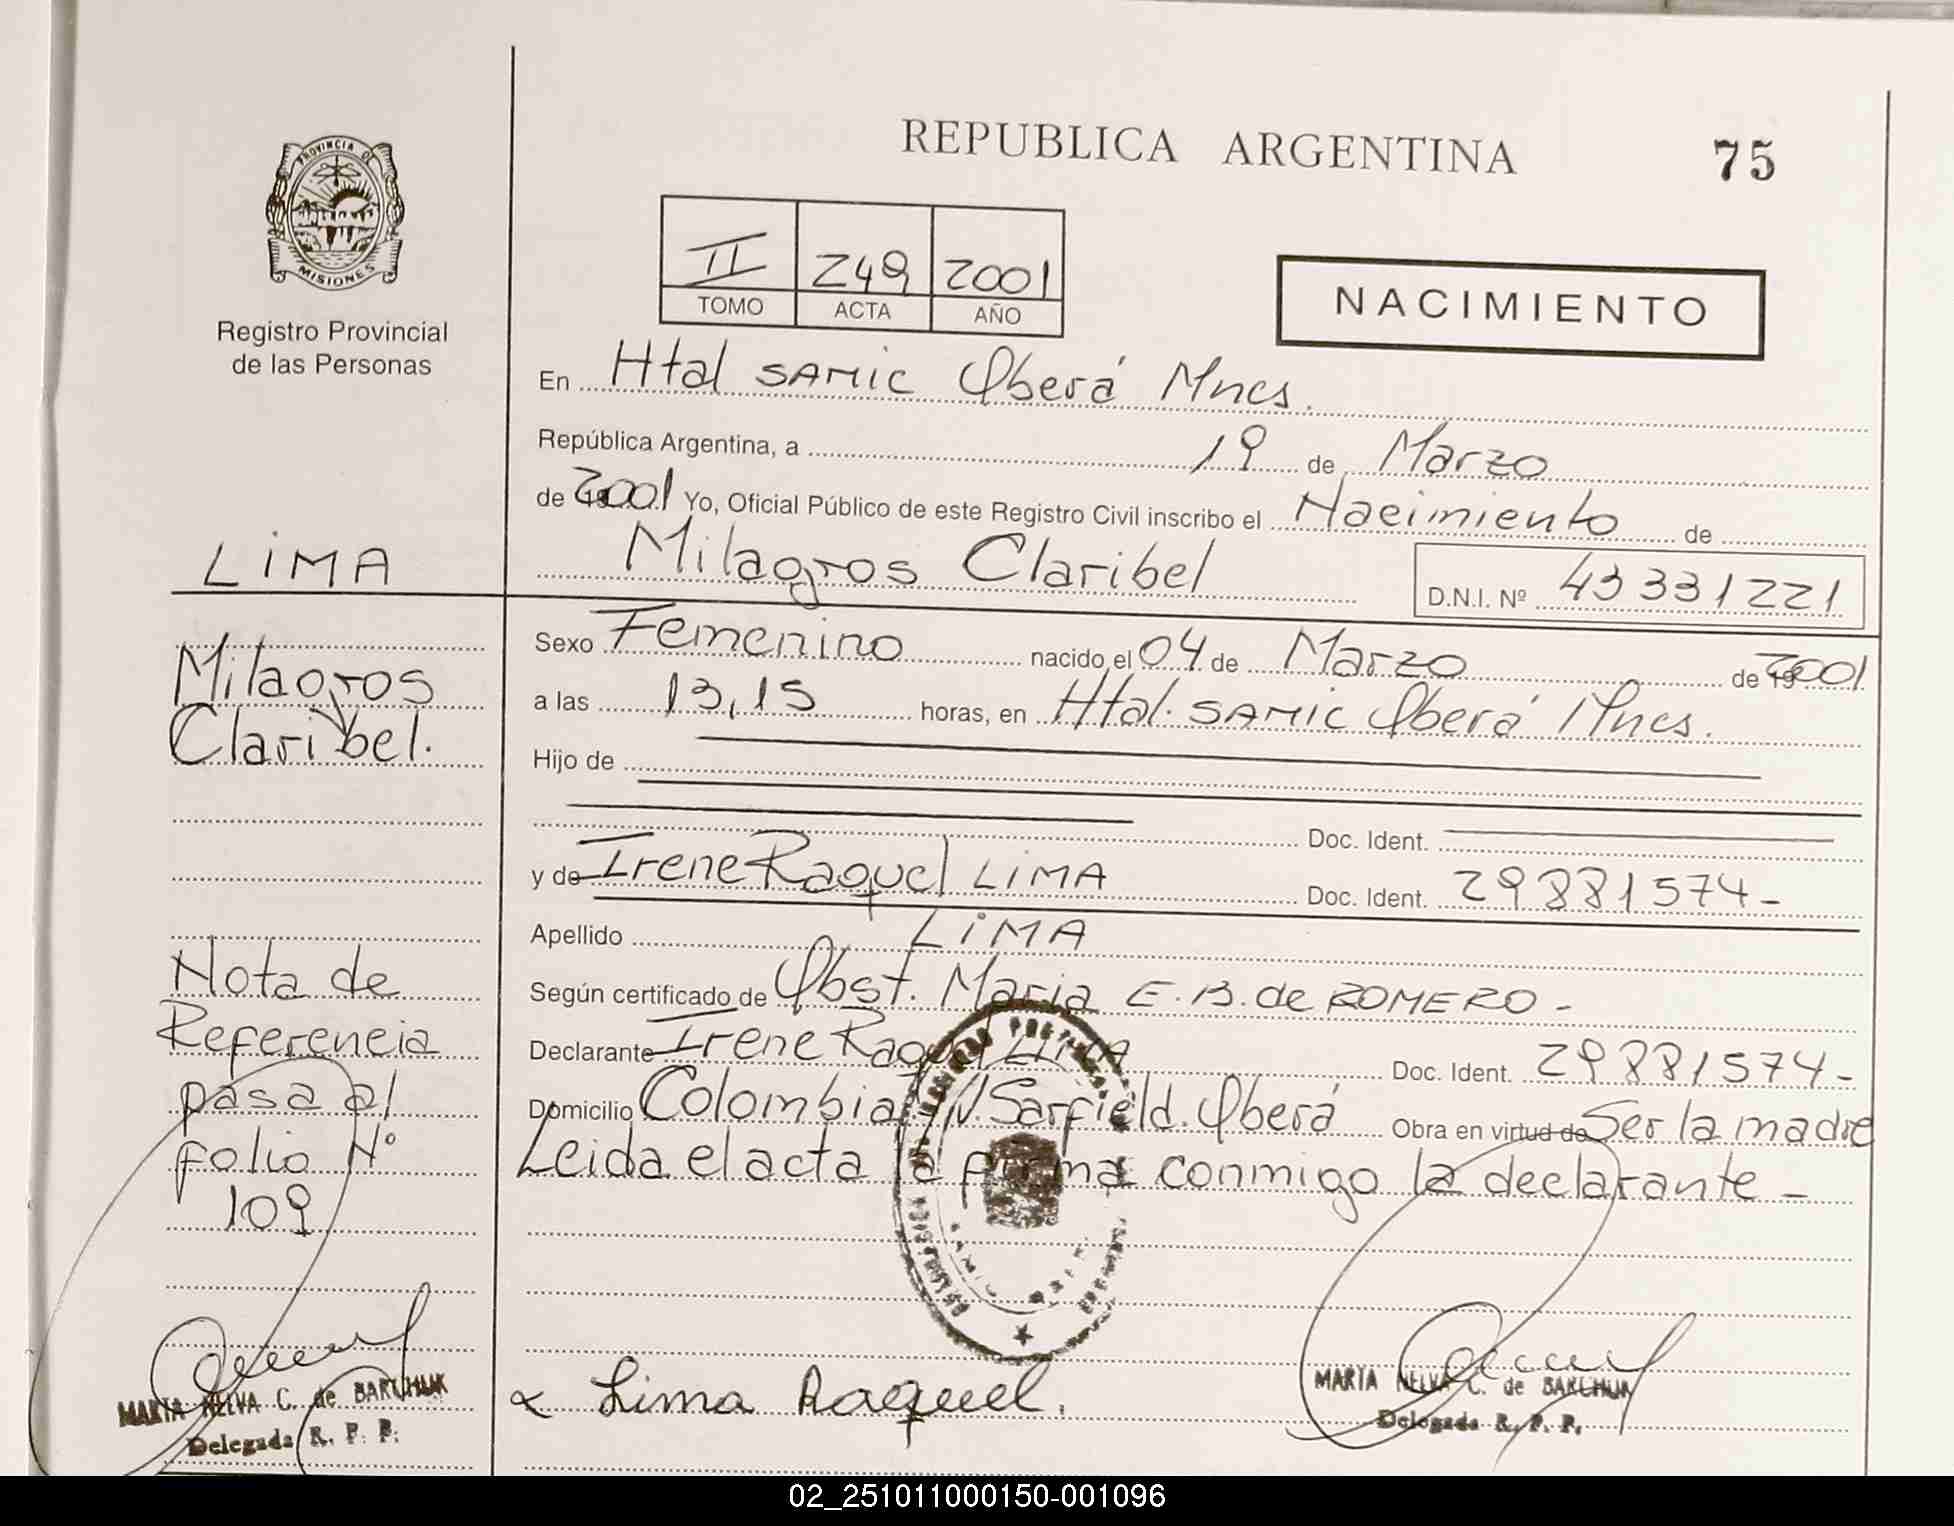 REPUBLICA ARGENTINA
75
PROVINCIA DE
MISIONES
Registro Provincial
de las Personas
II 249 2001
TOMO ACTA AÑO
NACIMIENTO
En Htal SAMIC Oberá Mnes.
República Argentina, a 19 de Marzo
de 2001 Yo, Oficial Público de este Registro Civil inscribo el Nacimiento de
Milagros Claribel D.N.I. Nº 43331221
LIMA
Milagros
Claribel.
Sexo Femenino nacido el 04 de Marzo de 2001
a las 13,15 horas, en Htal. SAMIC Oberá Mnes.
Hijo de
Doc. Ident.
y de Irene Raquel LIMA Doc. Ident. 29881574-
Apellido LIMA
Según certificado de Obst. Maria E.B. de ROMERO -
Declarante Irene Raquel LIMA Doc. Ident. 29881574-
Domicilio Colombia V. Sarfield. Oberá Obra en virtud de Ser la madre
Leida el acta la firma conmigo la declarante -
Nota de
Referencia
pasa al
folio Nº
109
Lima Raquel.
MARIA NELVA C. de BARCHUK
Delegada R. P. P.
MARIA NELVA C. de BARCHUK
Delegada R. P. P.
02_251011000150-001096